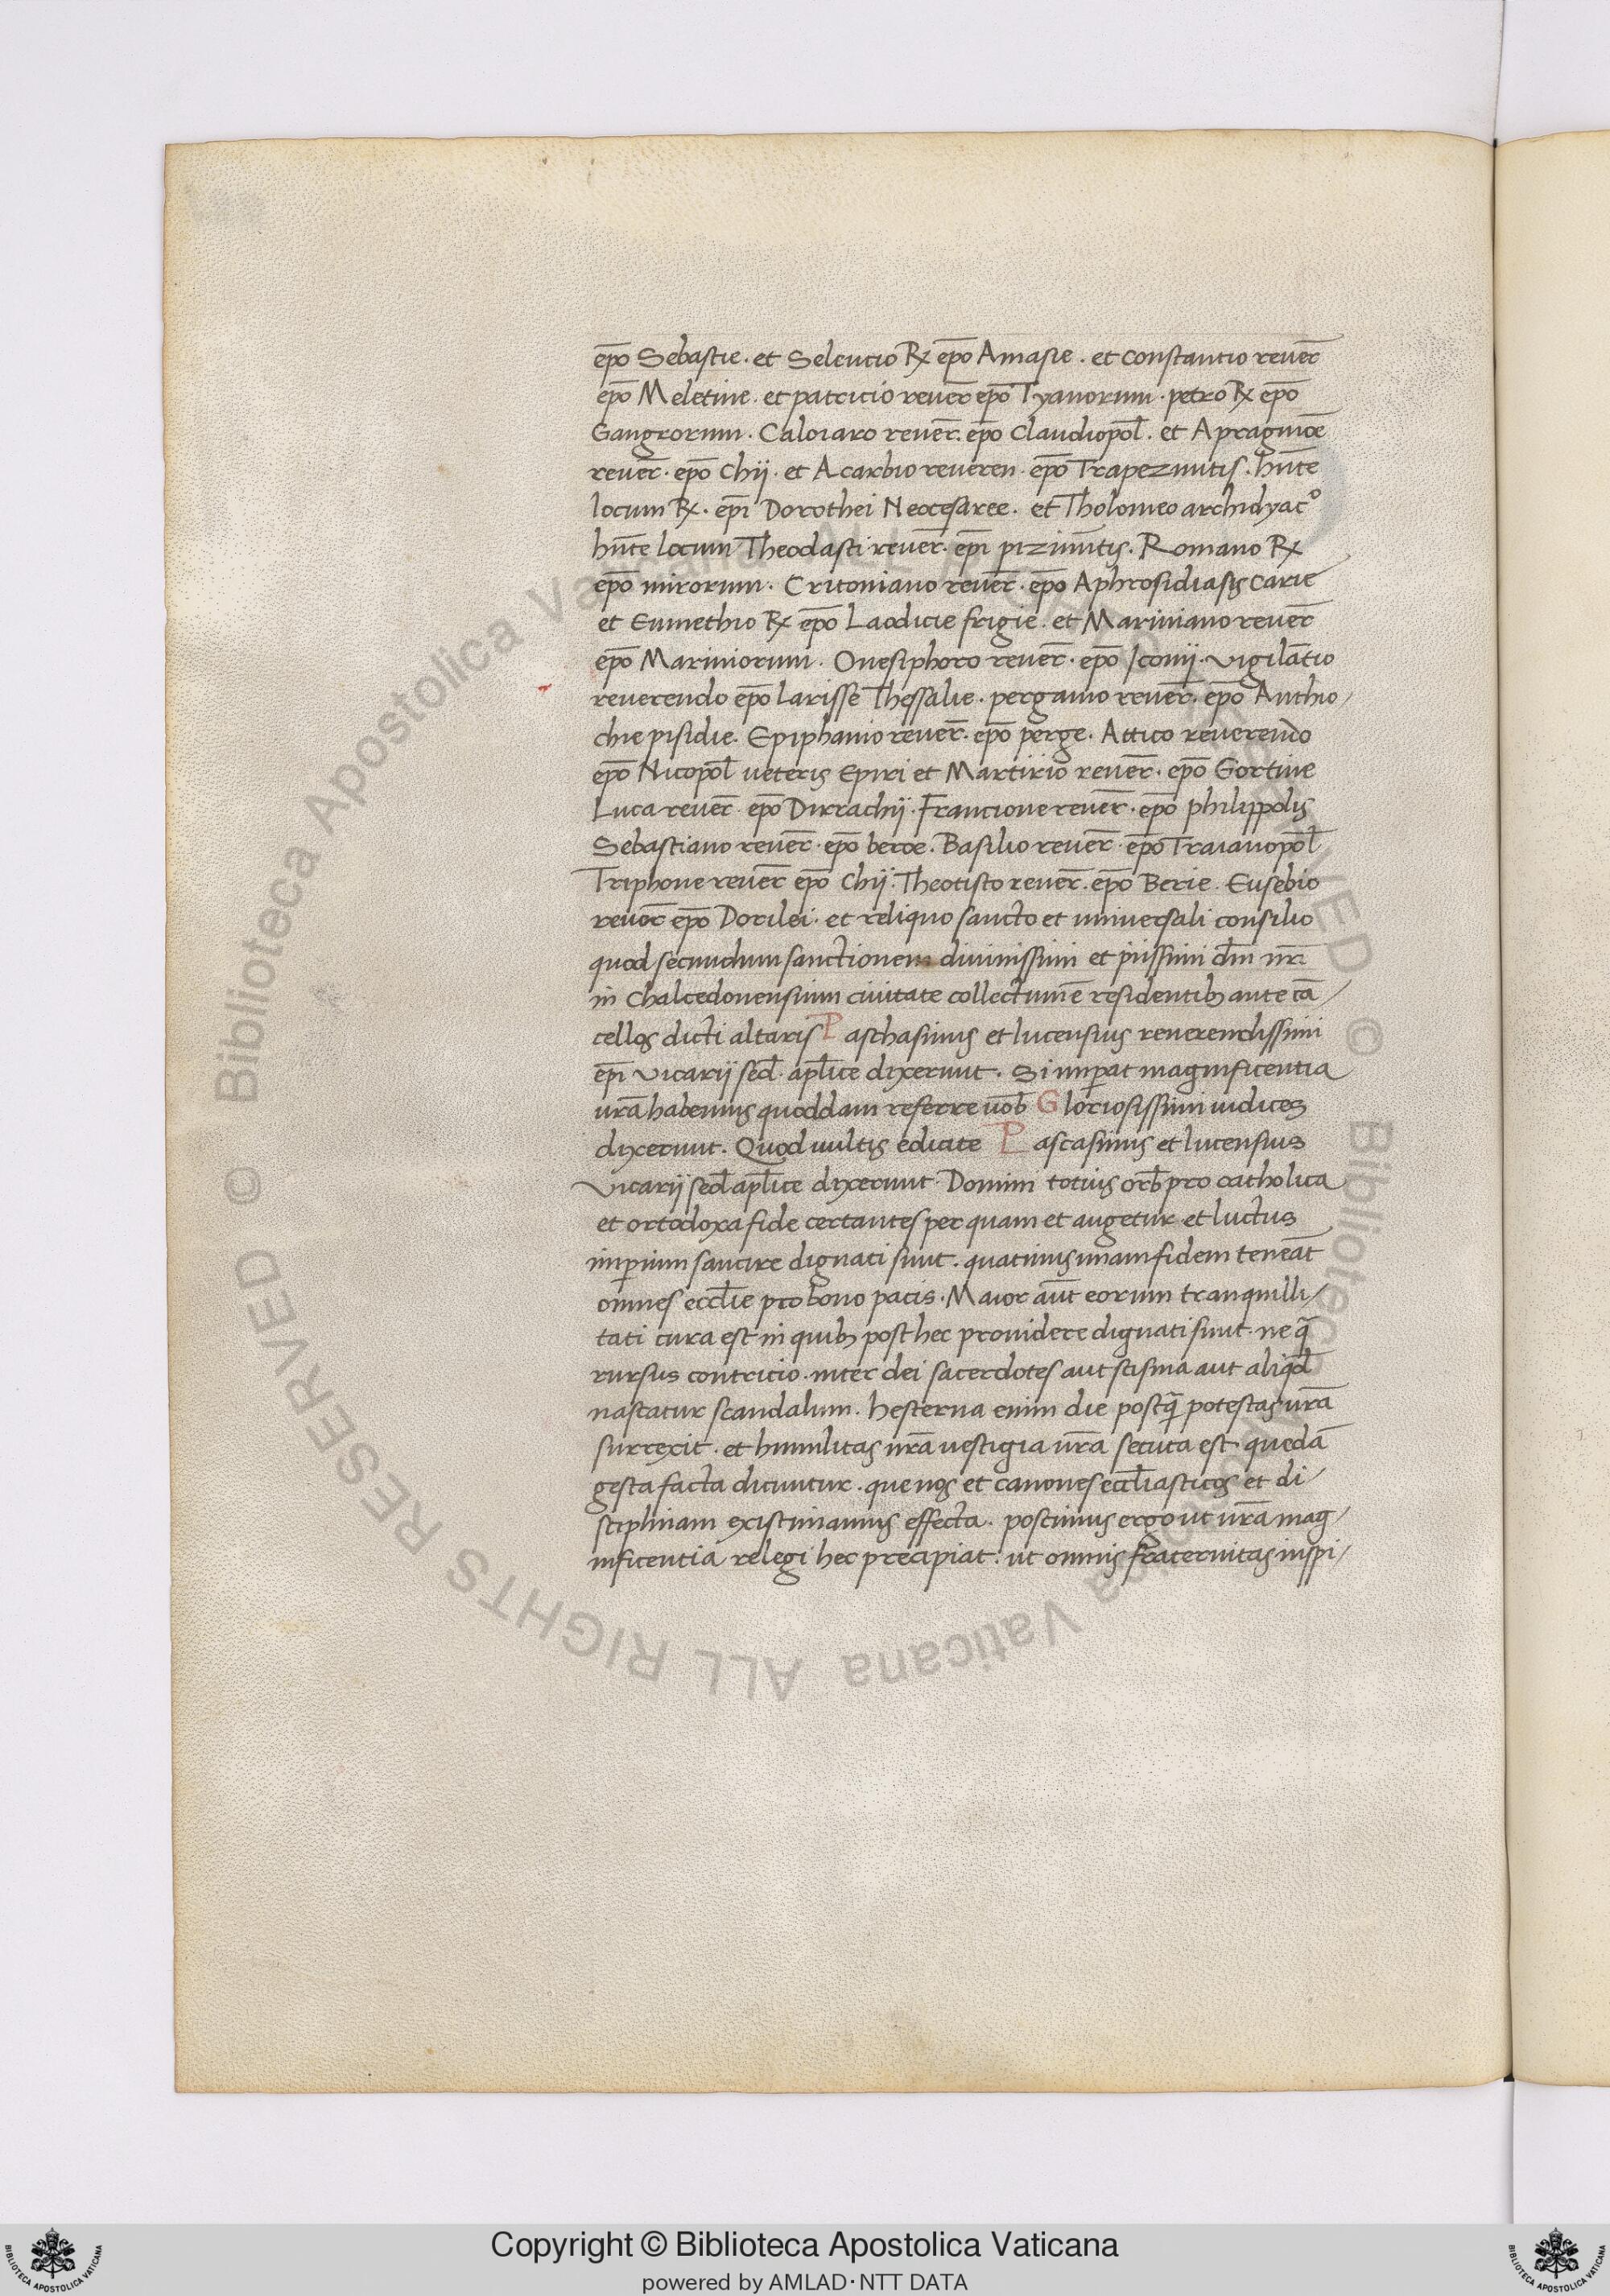 ep̄o Sebastie. et Seleucio R̵ ep̄o Amasie. et constantio reuer̄
ep̄o Meletine. et patricio reuer̄ ep̄o Tyanorum. petro R̵ ep̄o
Gangrorum. Caloiaro reuer̄. ep̄o Claudiopol̄. et Apragmoē
reuer̄. ep̄o Chij. et Acarbio reueren. ep̄o Trapezuntis. hn̄te
locum R̵. ep̄i Dorothei Neocesaree. et Tholomeo archidyac̊
hn̄te locum Theodasti reuer̄. ep̄i pizinuntis. Romano R̵
ep̄o mirorum. Critoniano reuer̄. ep̄o Aphrosidiasis Carie
et Eumethio R̵ ep̄o Laodicie frigie. et Mariniano reuer̄
ep̄o Mariniorum. Onesiphoro reuer̄. ep̄o Iconij. Vigilātio
reuerendo ep̄o Larisse Thessalie. pergamo reuer̄. ep̄o Anthio/
chie pisidie. Epiphanio reuer̄. ep̄o perge. Attico reuerendo
ep̄o Nicopol̄ ueteris Epiri et Martirio reuer̄. ep̄o Gortine
Luca reuer̄ ep̄o Dirrachij. Francione reuer̄. ep̄o philippolis
Sebastiano reuer̄. ep̄o beroe. Basilio reuer̄. ep̄o Traianopol̄
Triphone reuer̄ ep̄o Chij. Theotisto reuer̄. ep̄o Berie. Eusebio
reuer̄ ep̄o Dorilei. et reliquo sancto et uniuersali consilio
quod secundum sanctionem diuinissimi et piissimi dn̄i nr̄i
in Chalcedonensium ciuitate collectum ē residentib; ante cā/
cellos dicti altaris Paschasinus et lucensius reuerendissimi
ep̄i vicarij sed̄. apl̄ice dixerunt. Si imperat magnificentia
ur̄a habemus quoddam referre uob̄ Gloriosissimi iudices
dixerunt. Quod uultis edicite Pascasinus et lucensius
Vicarij sed̄ apl̄ice dixerunt. Domini totius orb̄ pro catholica
et ortodoxa fide certantes per quam et augetur et luctus
imperium sancire dignati sunt. quatinus unam fidem teneāt
omnes eccl̄ie pro bono pacis. Maior aūt eorum tranquilli/
tati cura est in quib; post hec prouidere dignati sunt. ne q̄
rursus contricio. inter dei sacerdotes aut scisma aut aliqd̄
nascatur scandalum. hesterna enim die postq̄ potestas ur̄a
surrexit. et humilitas nr̄a uestigia ur̄a secuta est quedā
gesta facta dicuntur. que nos et canones eccl̄iasticos et di/
sciplinam existimamus effecta. poscimus ergo ut ur̄a mag/
nificentia relegi hec precipiat: ut omnis fraternitas inspi/
Copyright © Biblioteca Apostolica Vaticana
powered by AMLAD·NTT DATA